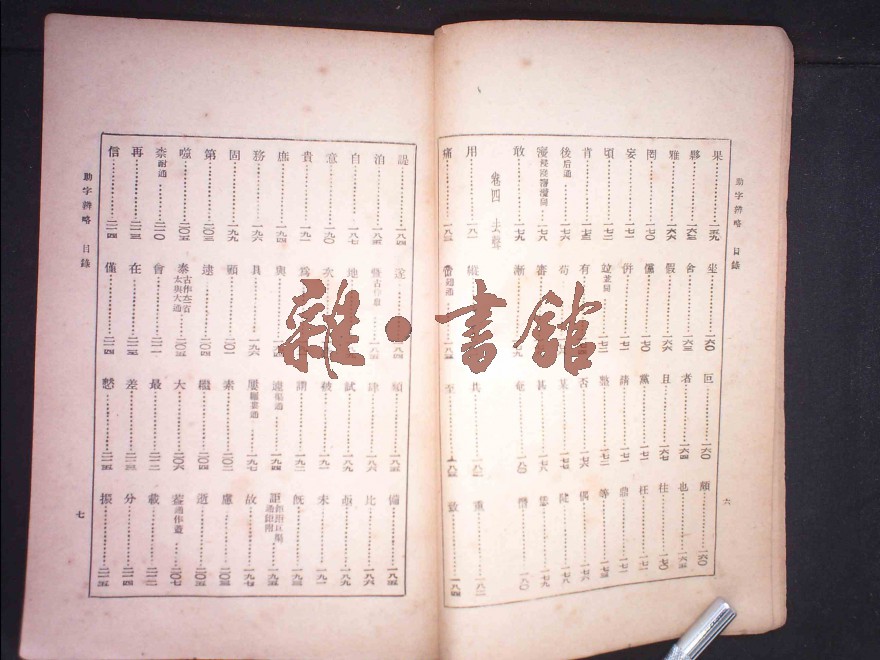 助字辨略 目錄
六
果 一五九 坐 一六〇 叵 一六〇 頗 一六〇
夥 一六三 舍 一六三 者 一六四 也 一六五
雅 一六六 假 一六六 且 一六六 往 一七〇
罔 一七〇 儻 一七〇 黨 一七一 枉 一七一
妄 一七一 併 一七一 請 一七一 鼎 一七二
頃 一七二 竝並同 一七二 整 一七二 等 一七三
肯 一七三 有 否 一七六 偶 一七六
後后通 一七七 苟 某 一七七
審 甚 一七八
敢 一七九 漸 奄 一八〇 僭 一八〇
卷四 去聲
用 一八一 縱 共 一八二 重 一八二
痛 一八三 至 一八三 致 一八四
諟 一八四 遂 一八四
泊 一八五 肆 一八六 比 一八六
自 一八七 地 試 一八九 亟 一八九
意 一九〇 次 被 一九一 未 一九一
貴 一九一 爲 謂 一九二 既 一九三
庶 一九四 與 遽渠通 一九四 詎 一九五
務 一九六 具 一九六 屢婁通 一九七 故 一九七
固 一九九 顧 二〇一 素 二〇二 慮 二〇三
第 二〇三 逮 二〇四 繼 二〇四 逝 二〇五
噬 二〇五 泰古作太省太與大通 二〇五 大 二〇六 蓋通作盖 二〇七
柰耐通 二一〇 會 二一一 最 二一二 載 二一二
再 二一三 在 二一三 差 二一三 分 二一四
信 二一四 僅 二一四 慭 二一五 振 二一五
助字辨略 目錄
七
雜·書館